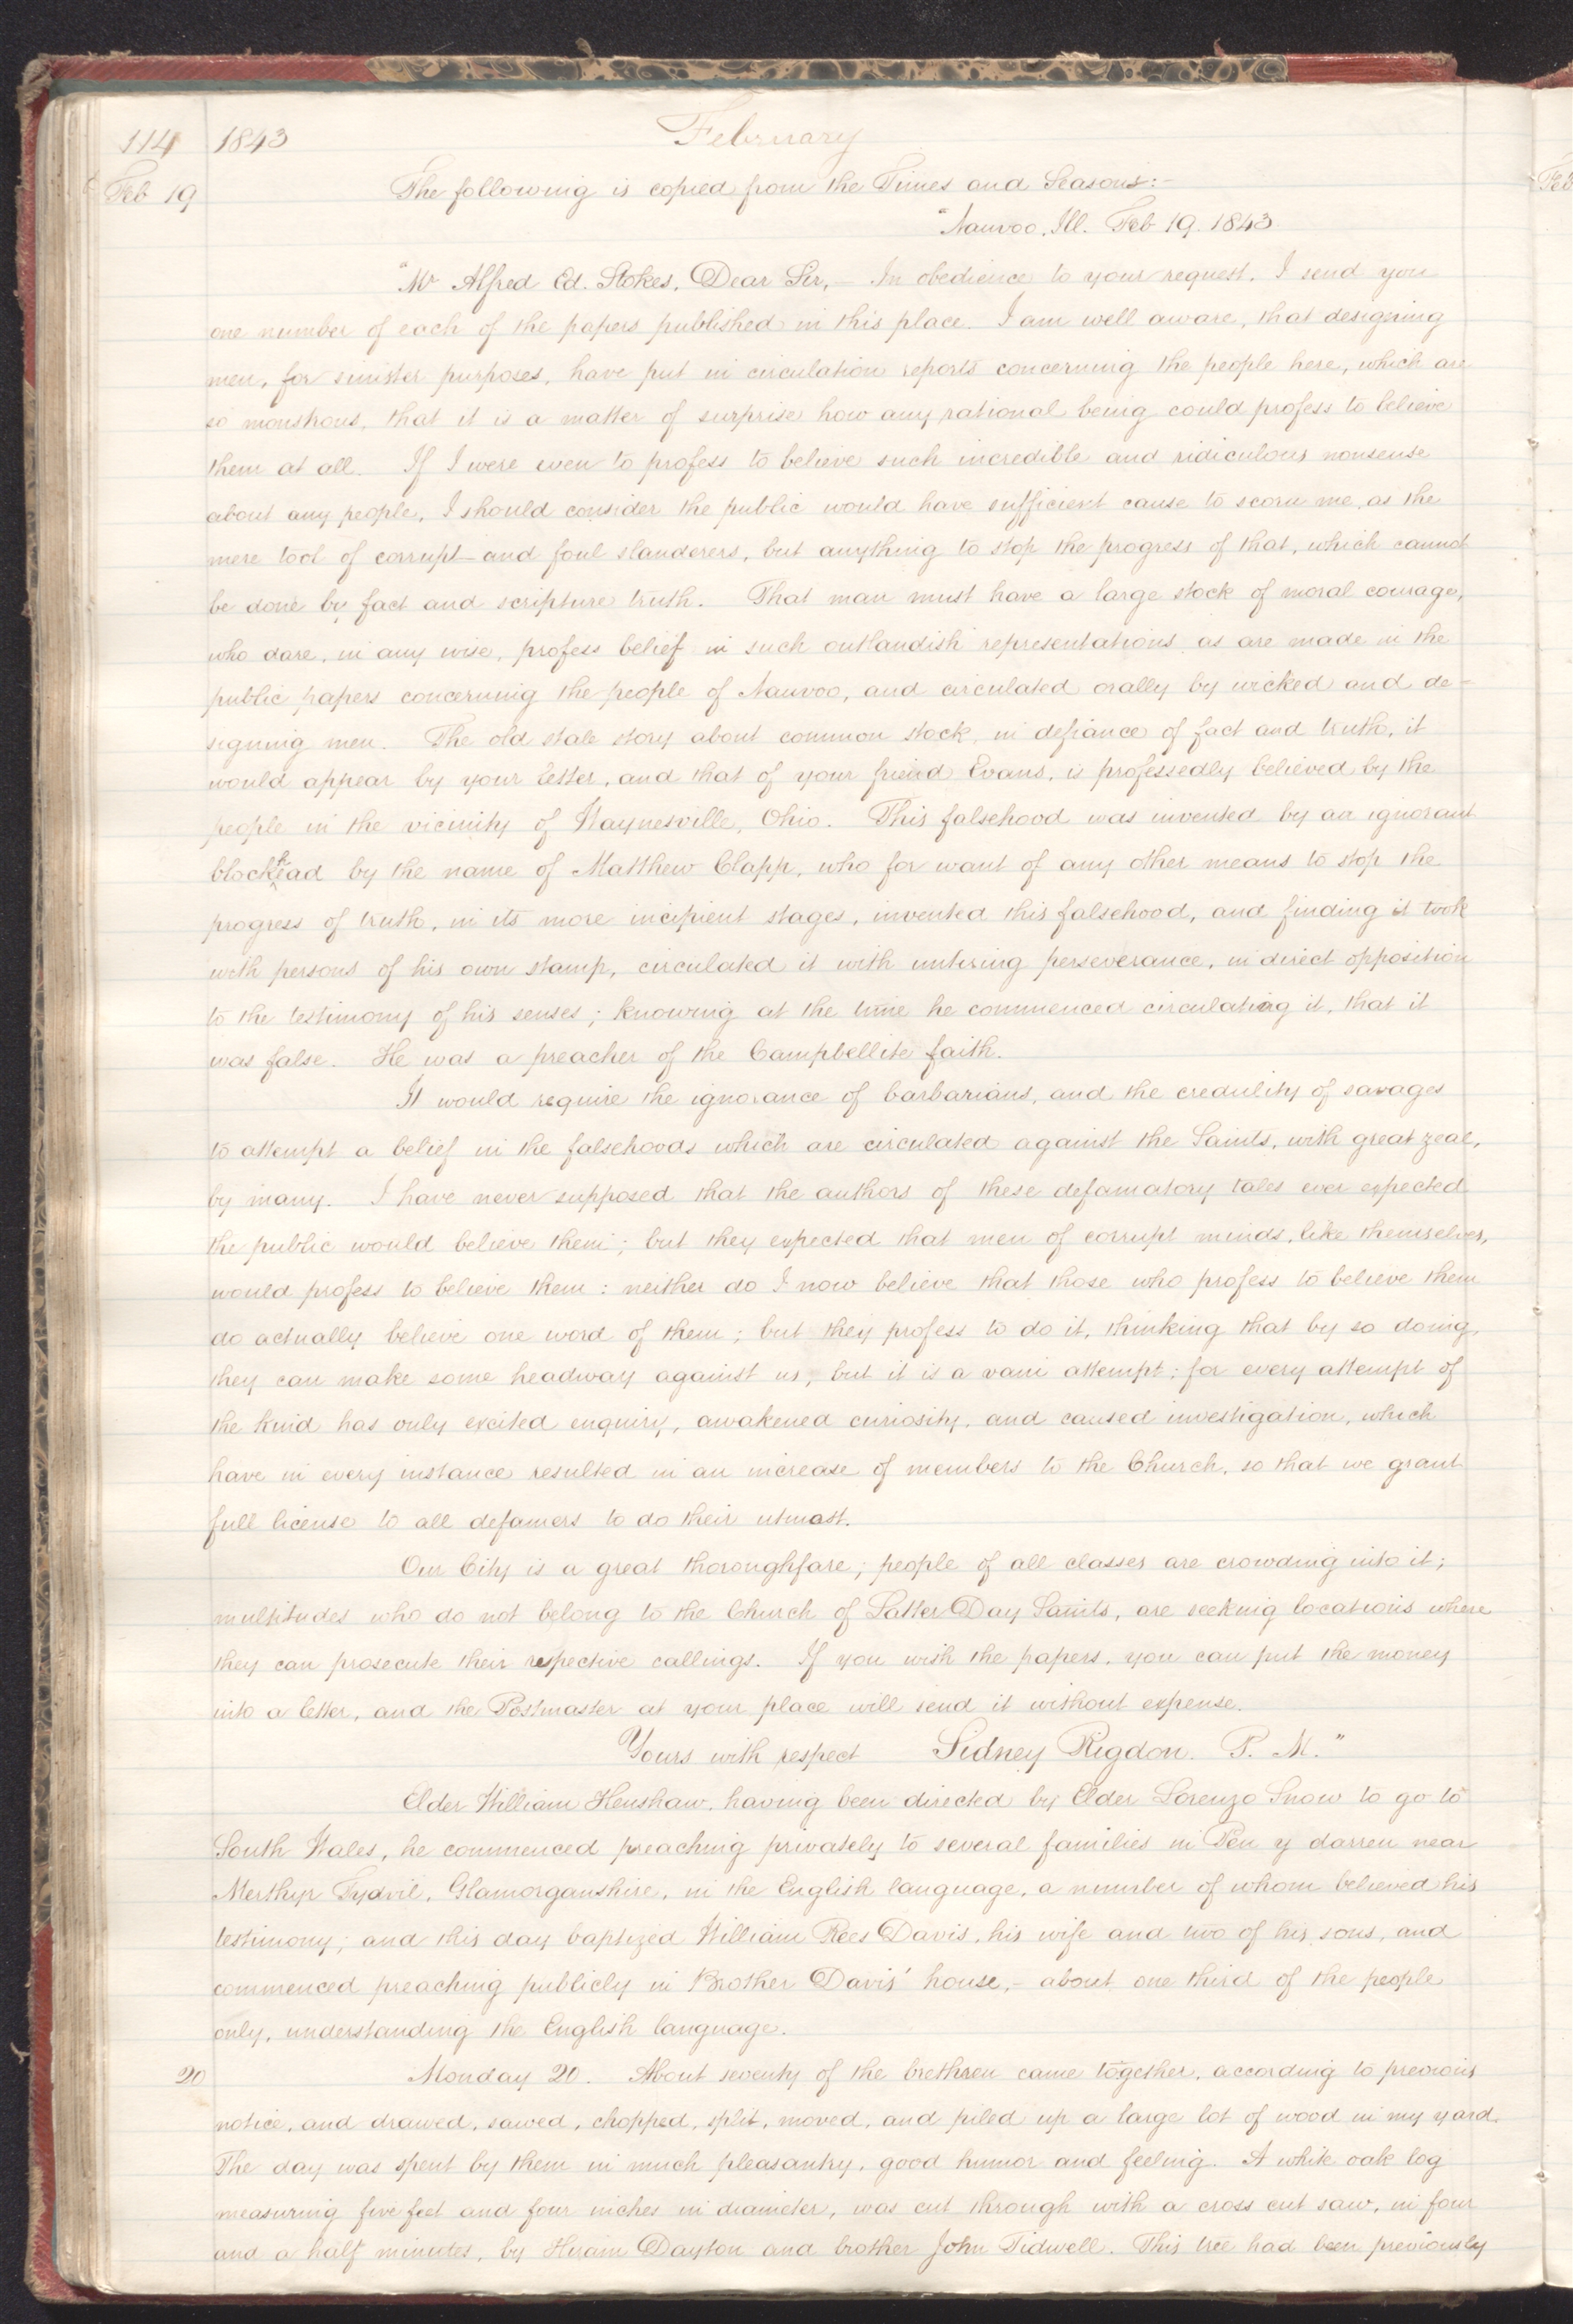 114 1843 February
Feb 19 The following is copied from the Times and Seasons:-
"Nauvoo, Ill. Feb 19. 1843.
"Mr Alfred Ed. Stokes, Dear Sir,— In obedience to your request, I send you
one number of each of the papers published in this place. I am well aware, that designing
men, for sinister purposes, have put in circulation reports concerning the people here, which are
so monstrous, that it is a matter of surprise how any rational being could profess to believe
them at all. If I were even to profess to believe such incredible and ridiculous nonsense
about any people, I should consider the public would have sufficient cause to scorn me, as the
mere tool of corrupt and foul slanderers, but anything to stop the progress of that, which cannot
be done by fact and scripture truth. That man must have a large stock of moral courage,
who dare, in any wise, profess belief in such outlandish representations, as are made in the
public papers concerning the people of Nauvoo, and circulated orally by wicked and de-
signing men. The old stale story about common stock, in defiance of fact and truth, it
would appear by your letter, and that of your friend Evans, is professedly believed by the
people in the vicinity of Waynesville, Ohio. This falsehood was invented by an ignorant
blockhead by the name of Matthew Clapp, who for want of any other means to stop the
progress of truth, in its more incipient stages, invented this falsehood, and finding it took
with persons of his own stamp, circulated it with untiring perseverance, in direct opposition
to the testimony of his senses; knowing at the time he commenced circulating it, that it
was false. He was a preacher of the Campbellite faith.
It would require the ignorance of barbarians, and the credulity of savages
to attempt a belief in the falsehoods which are circulated against the Saints, with great zeal,
by many. I have never supposed that the authors of these defamatory tales ever expected
the public would believe them; but they expected that men of corrupt minds, like themselves,
would profess to believe them: neither do I now believe that those who profess to believe them
do actually believe one word of them; but they profess to do it, thinking that by so doing,
they can make some headway against us; but it is a vain attempt; for every attempt of
the kind has only excited enquiry, awakened curiosity, and caused investigation, which
have in every instance resulted in an increase of members to the Church, so that we grant
full license to all defamers to do their utmost.
Our City is a great thoroughfare; people of all classes are crowding into it;
multitudes who do not belong to the Church of Latter Day Saints, are seeking locations where
they can prosecute their respective callings. If you wish the papers, you can put the money
into a letter, and the Postmaster at your place will send it without expense.
Yours with respect Sidney Rigdon. P. M."
Elder William Henshaw, having been directed by Elder Lorenzo Snow to go to
South Wales, he commenced preaching privately to several families in Pen y darren near
Merthyr Tydvil, Glamorganshire, in the English language, a number of whom believed his
testimony; and this day baptized William Rees Davis, his wife and two of his sons, and
commenced preaching publicly in Brother Davis' house,- about one third of the people
only, understanding the English language.
20 Monday 20. About seventy of the brethren came together, according to previous
notice, and drawed, sawed, chopped, split, moved, and piled up a large lot of wood in my yard.
The day was spent by them in much pleasantry, good humor and feeling. A white oak log
measuring five feet and four inches in diameter, was cut through with a cross cut saw, in four
and a half minutes, by Hiram Dayton and brother John Tidwell. This tree had been previously